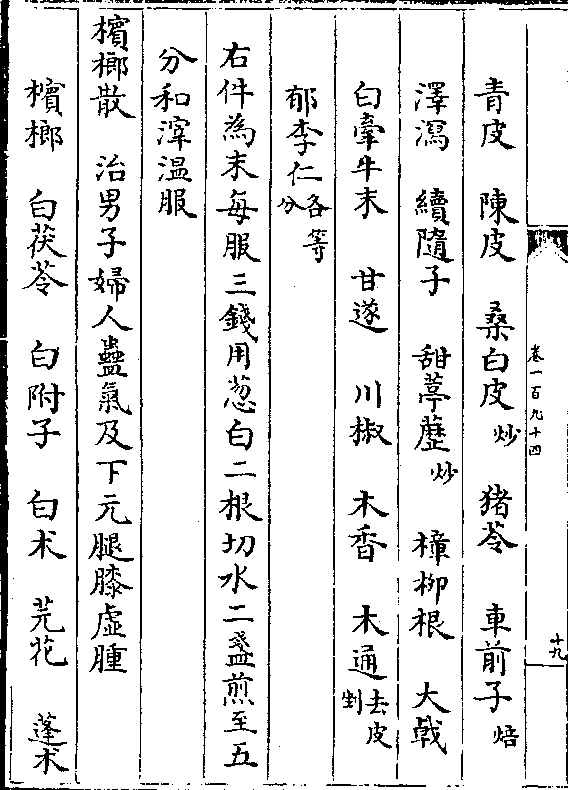 卷一百九十四
十九
青皮 陳皮 桑白皮炒 猪苓 車前子焙
澤瀉 續隨子 甜葶藶炒 樟柳根 大戟
白牽牛末 甘遂 川椒 木香 木通去皮剉
郁李仁各等分
右件為末每服三錢用葱白二根切水二盞煎至五
分和滓温服
檳榔散 治男子婦人蠱氣及下元腿膝虛腫
檳榔 白茯苓 白附子 白术 芫花 蓬术